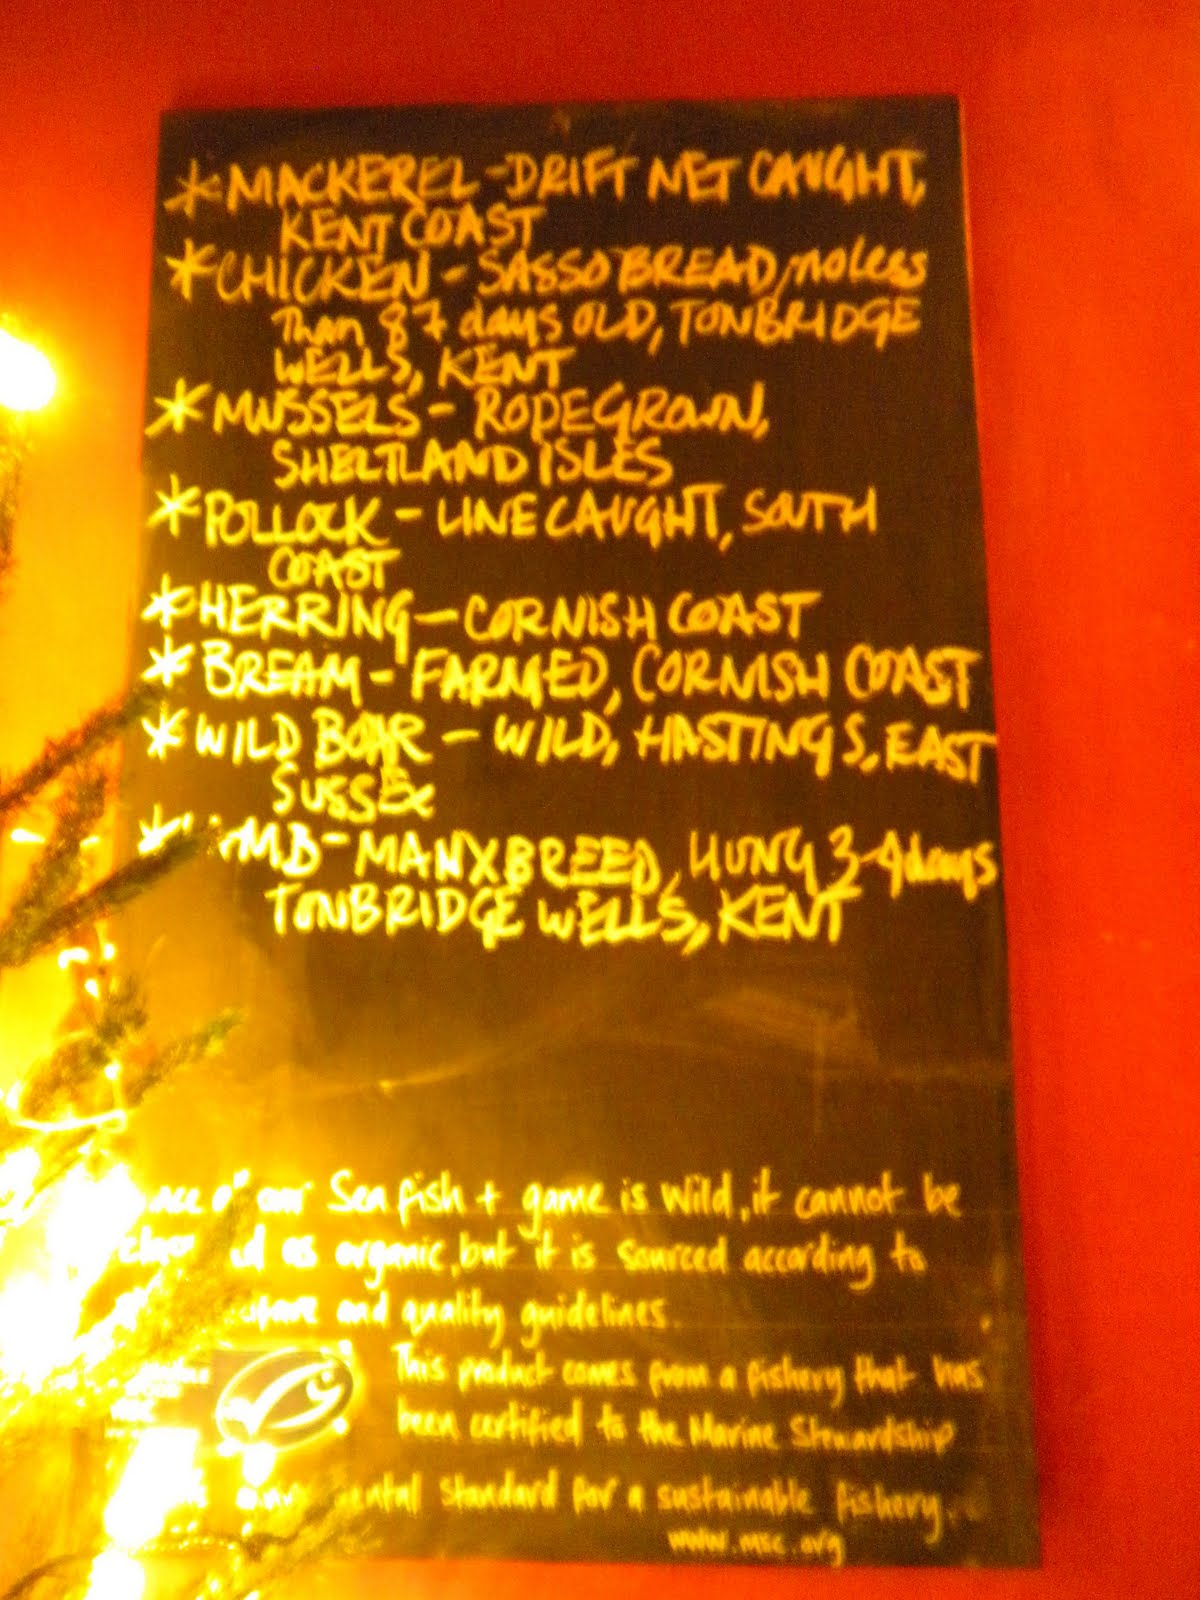 * MACKEREL - DRIFT NET CAUGHT,
KENT COAST
* CHICKEN - SASSO BREAD, no less
Than 87 days OLD, TONBRIDGE
WELLS, KENT
* MUSSELS - ROPEGROWN,
SHELTLAND ISLES
* POLLOCK - LINE CAUGHT, SOUTH
COAST
* HERRING - CORNISH COAST
* BREAM - FARMED, CORNISH COAST
* WILD BOAR - WILD, HASTINGS, EAST
SUSSEX
* LAMB - MANX BREED, HUNG 3-4 days
TONBRIDGE WELLS, KENT
our Sea fish + game is wild, it cannot be
as organic, but it is sourced according to
and quality guidelines.
This product comes from a fishery that has
been certified to the Marine Stewardship
standard for a sustainable fishery.
www.msc.org